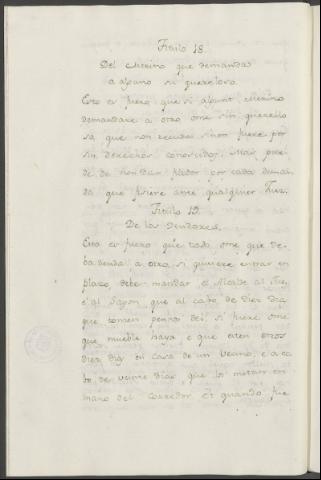 Titulo 18.
Del Merino que demandas
a alguno si querelloso.
Esto es fuero que si algunt Merino
demandare a otro ome sin querello
sa que non recuda sinon fuere por
sus derechos conosudos. Mas pue
de de non dar fiador por cada deman
da que fisiere ante qualquier Juez.
Titulo 19.
De los deudores.
Esto es fuero que todo ome que de
ba deuda a otro si quisiere entrar en
plazo, debe mandar el Alcalde al Jue,
e al Sayon que al cabo de diez dias
que tomen pennos del si fuere ome
que mueble haya e que esten otros
diez dias en casa de un vecino, e a ca
bo de veinte dias que los metan en
mano del corredor et quando fue